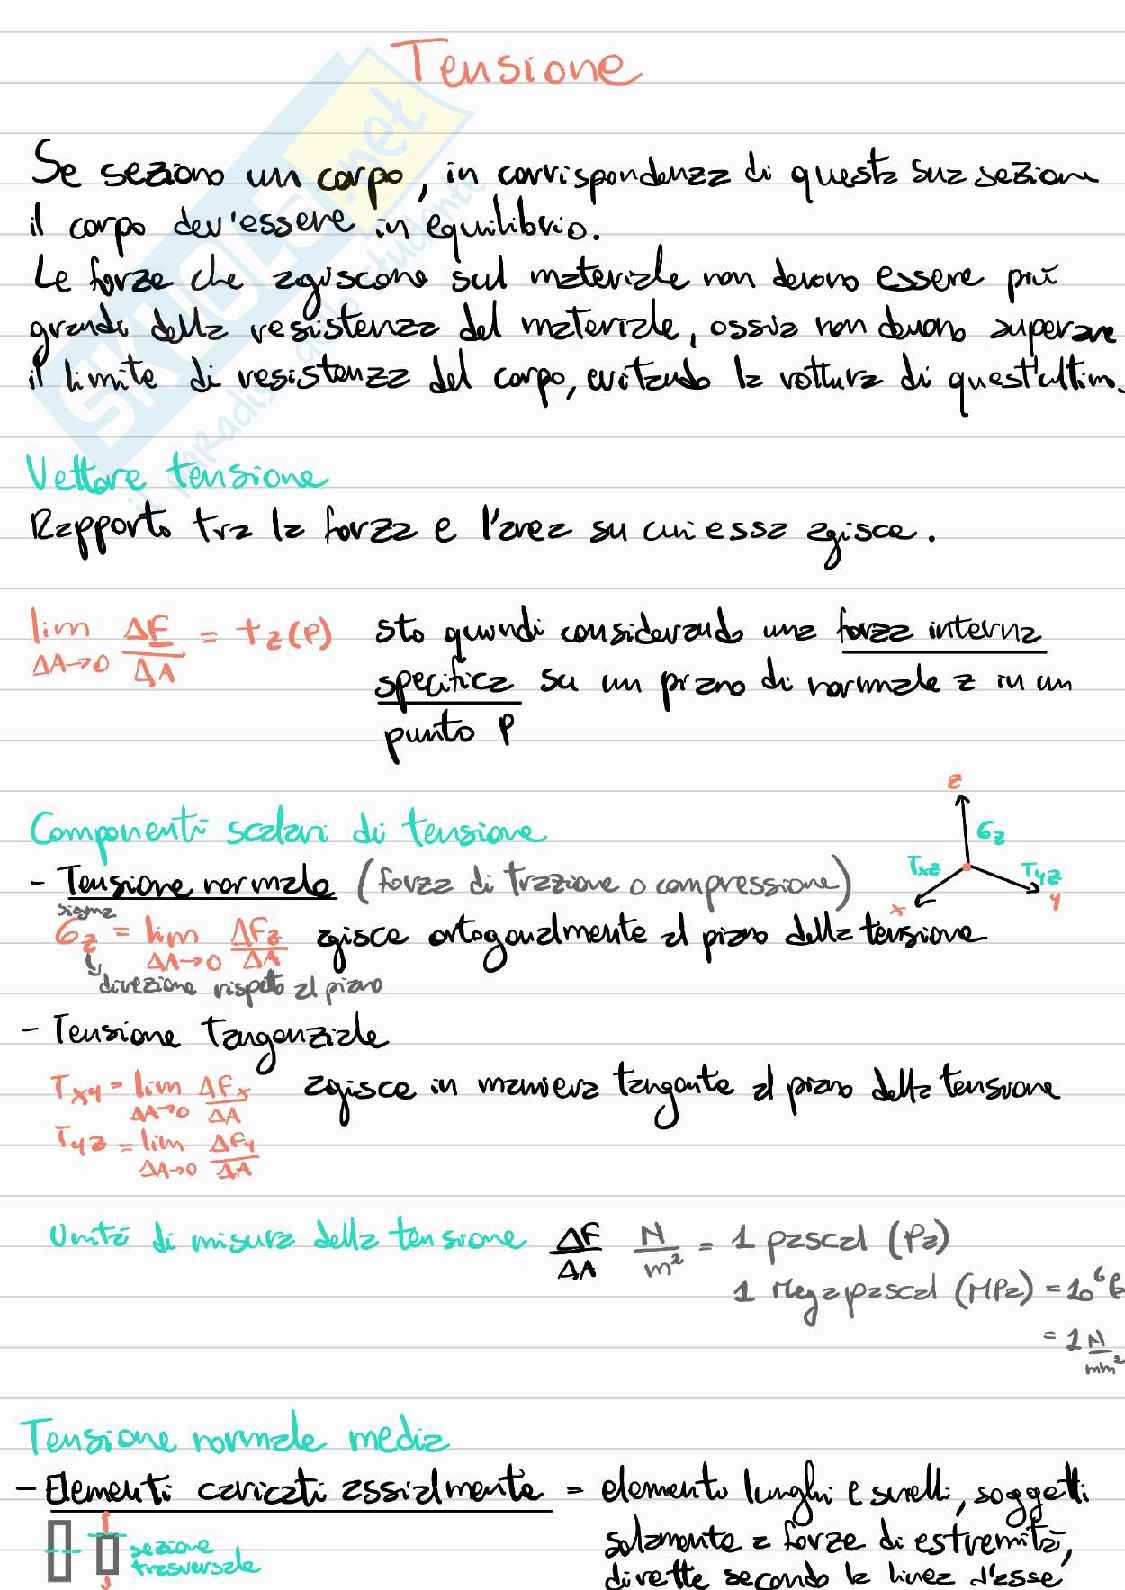 Tensione
Se seziono un corpo, in corrispondenza di questa sua sezione
il corpo dev'essere in equilibrio.
Le forze che agiscono sul materiale non devono essere più
grandi della resistenza del materiale, ossia non devono superare
il limite di resistenza del corpo, evitando la rottura di quest'ultimo.
Vettore tensione
Rapporto tra la forza e l'area su cui essa agisce.
lim ΔA→0 ΔF/ΔA = tz(P) sto quindi considerando una forza interna
specifica su un piano di normale z in un
punto P
z
σz
τxz τyz
x y
Componenti scalari di tensione
- Tensione normale (forza di trazione o compressione)
sigma
σz = lim ΔA→0 ΔFz/ΔA agisce ortogonalmente al piano della tensione
direzione rispetto al piano
- Tensione tangenziale
τxy = lim ΔA→0 ΔFx/ΔA agisce in maniera tangente al piano della tensione
τyz = lim ΔA→0 ΔFy/ΔA
Unità di misura della tensione ΔF/ΔA N/m² = 1 pascal (Pa)
1 Megapascal (MPa) = 10⁶
= 1 N/mm²
Tensione normale media
- Elementi caricati assialmente = elemento lunghi e snelli, soggetti
solamente a forze di estremità,
sezione
trasversale
dirette secondo la linea d'asse
SKUOLA.net
il paradiso dello studente